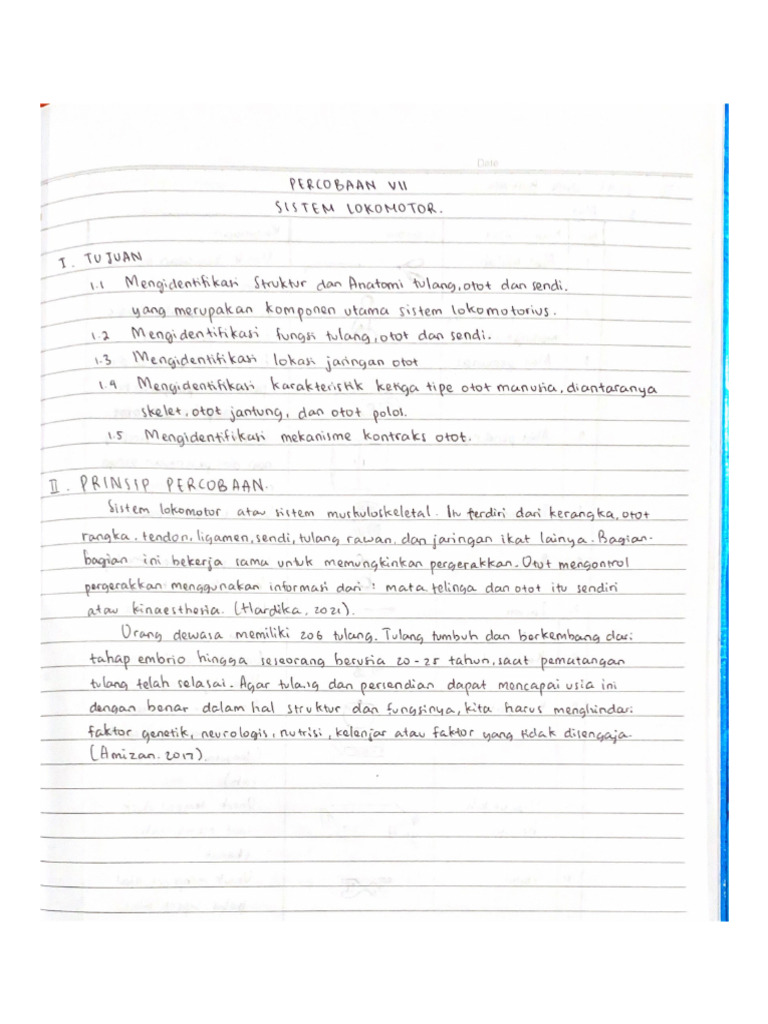 Date
PERCOBAAN VII
SISTEM LOKOMOTOR.
I. TUJUAN
1.1 Mengidentifikasi Struktur dan Anatomi tulang, otot dan sendi.
yang merupakan komponen utama sistem lokomotorius.
1.2 Mengidentifikasi fungsi tulang, otot dan sendi.
1.3 Mengidentifikasi lokasi jaringan otot
1.4 Mengidentifikasi karakteristik ketiga tipe otot manusia, diantaranya
skelet, otot jantung, dan otot polos.
1.5 Mengidentifikasi mekanisme kontraks otot.
II. PRINSIP PERCOBAAN.
Sistem lokomotor atau sistem muskuloskeletal. Itu terdiri dari kerangka, otot
rangka, tendon, ligamen, sendi, tulang rawan, dan jaringan ikat lainya. Bagian-
bagian ini bekerja sama untuk memungkinkan pergerakkan. Otot mengontrol
pergerakkan menggunakan informasi dari : mata telinga dan otot itu sendiri
atau kinaesthesia. (Hardika, 2021).
Orang dewasa memiliki 206 tulang. Tulang tumbuh dan berkembang dari
tahap embrio hingga seseorang berusia 20-25 tahun, saat pematangan
tulang telah selasai. Agar tulang dan persendian dapat mencapai usia ini
dengan benar dalam hal struktur dan fungsinya, kita harus menghindari
faktor genetik, neurologis, nutrisi, kelenjar atau faktor yang tidak disengaja.
(Amizan. 2017).